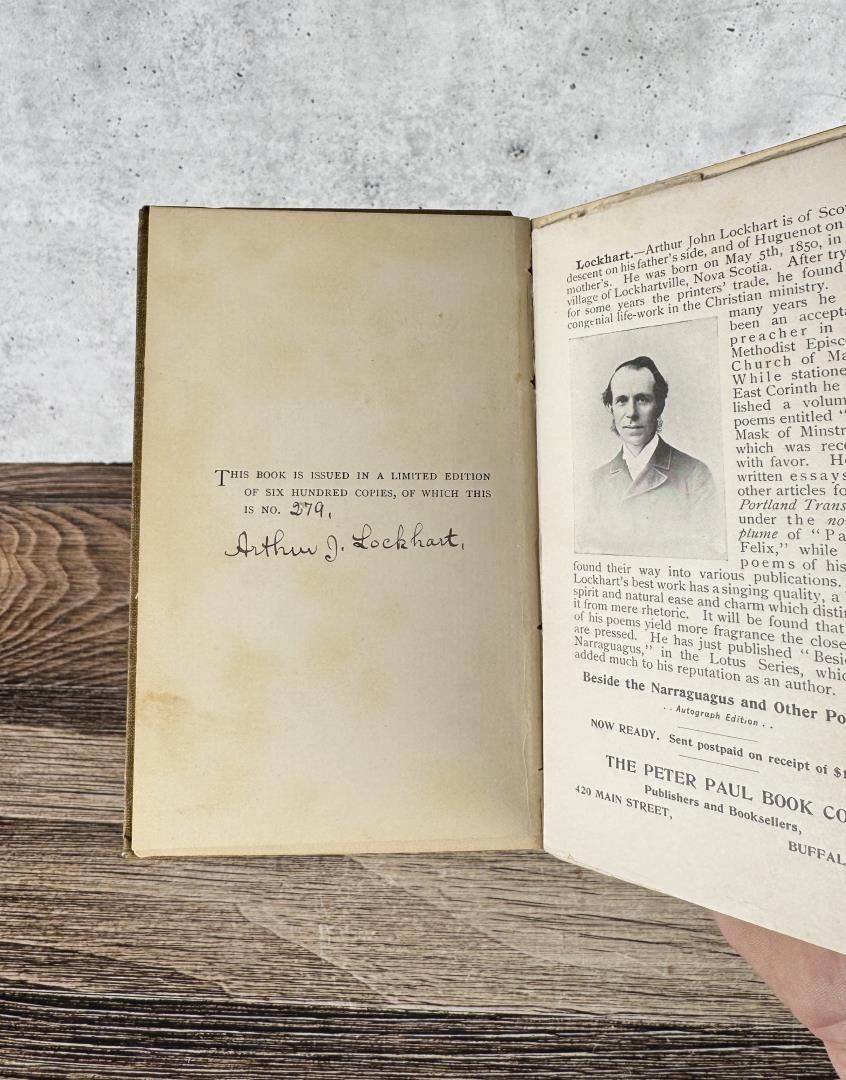 THIS BOOK IS ISSUED IN A LIMITED EDITION
OF SIX HUNDRED COPIES, OF WHICH THIS
IS NO. 279.
Arthur J. Lockhart.
Lockhart.—Arthur John Lockhart is of Sco
descent on his father's side, and of Huguenot on
mother's. He was born on May 5th, 1850, in
village of Lockhartville, Nova Scotia. After try
for some years the printers' trade, he found
congenial life-work in the Christian ministry.
many years he
been an accepta
preacher in
Methodist Episc
Church of Ma
While statione
East Corinth he
lished a volum
poems entitled "
Mask of Minstr
which was rece
with favor. H
written essays
other articles fo
Portland Trans
under the no
plume of "Pa
Felix," while
poems of his
found their way into various publications.
Lockhart's best work has a singing quality, a
spirit and natural ease and charm which distin
it from mere rhetoric. It will be found that
of his poems yield more fragrance the close
are pressed. He has just published "Besi
Narraguagus," in the Lotus Series, whic
added much to his reputation as an author.
Beside the Narraguagus and Other Po
. . Autograph Edition . .
NOW READY. Sent postpaid on receipt of $1
THE PETER PAUL BOOK CO
Publishers and Booksellers,
420 MAIN STREET,
BUFFAL